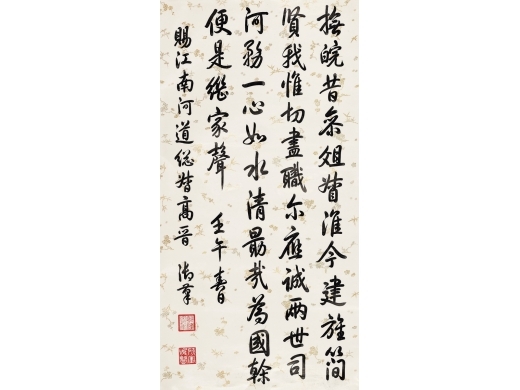 撫皖昔參俎督淮今建旌簡
賢我惟切盡職尔應誠兩世司
河務一心如水清勗哉為國榦
便是繼家聲 壬午春日
賜江南河道総督高晉 御筆